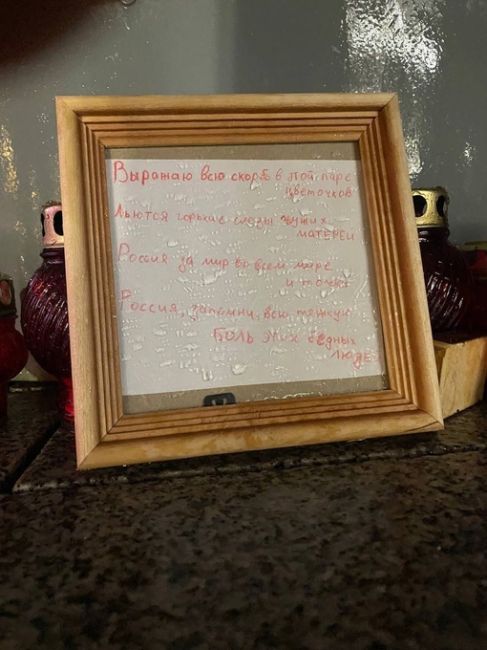 Выражаю всю скорбь в этой паре
цветочков
Льются горькие слезы чужих
матерей
Россия за мир во всем мире
и точка
Россия, запомни, всю тяжкую
Боль этих бедных
людей